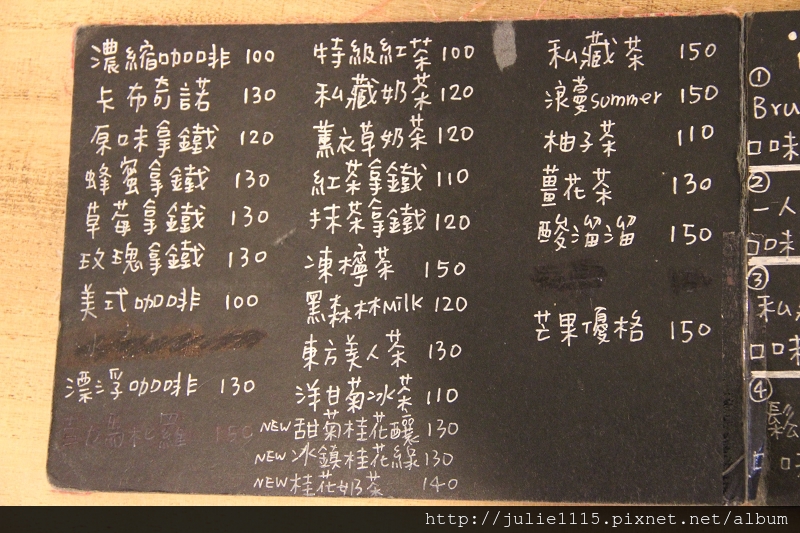 濃縮咖啡 100
卡布奇諾 130
原味拿鐵 120
蜂蜜拿鐵 130
草莓拿鐵 130
玫瑰拿鐵 130
美式咖啡 100
漂浮咖啡 130
150
特級紅茶 100
私藏奶茶 120
薰衣草奶茶 120
紅茶拿鐵 110
抹茶拿鐵 120
凍檸茶 150
黑森林Milk 120
東方美人茶 130
洋甘菊冰茶 110
NEW 甜菊桂花釀 130
NEW 冰鎮桂花綠 130
NEW 桂花奶茶 140
私藏茶 150
浪蔓summer 150
柚子茶 110
薑花茶 130
酸溜溜 150
芒果優格 150
①
Bru
口味
②
一人
口味
③
私
口味
④
鬆
口
http://julie1115.pixnet.net/album